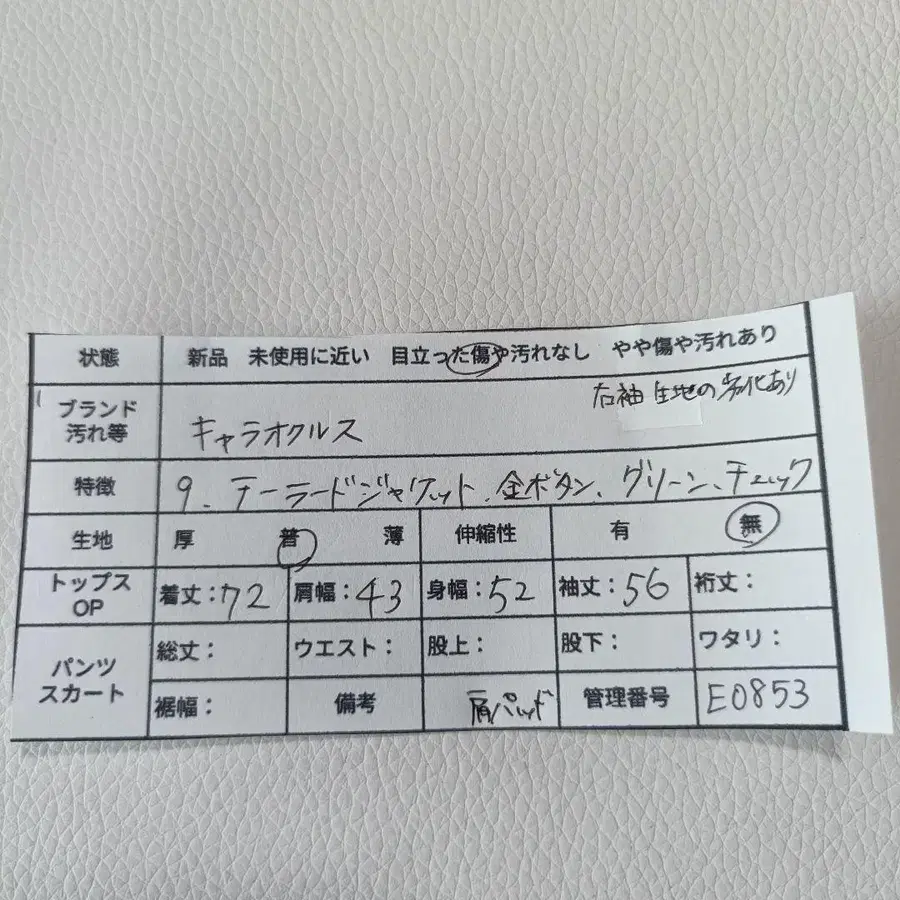 状態 新品 未使用に近い 目立った傷や汚れなし やや傷や汚れあり
ブランド 汚れ等 キャラオクルス 右袖 生地の劣化あり
特徴 9、テーラードジャケット、金ボタン、グリーン、チェック
生地 厚 普 薄 伸縮性 有 無
トップス OP 着丈:72 肩幅:43 身幅:52 袖丈:56 裄丈:
パンツ スカート 総丈: ウエスト: 股上: 股下: ワタリ:
裾幅: 備考 肩パッド 管理番号 E0853